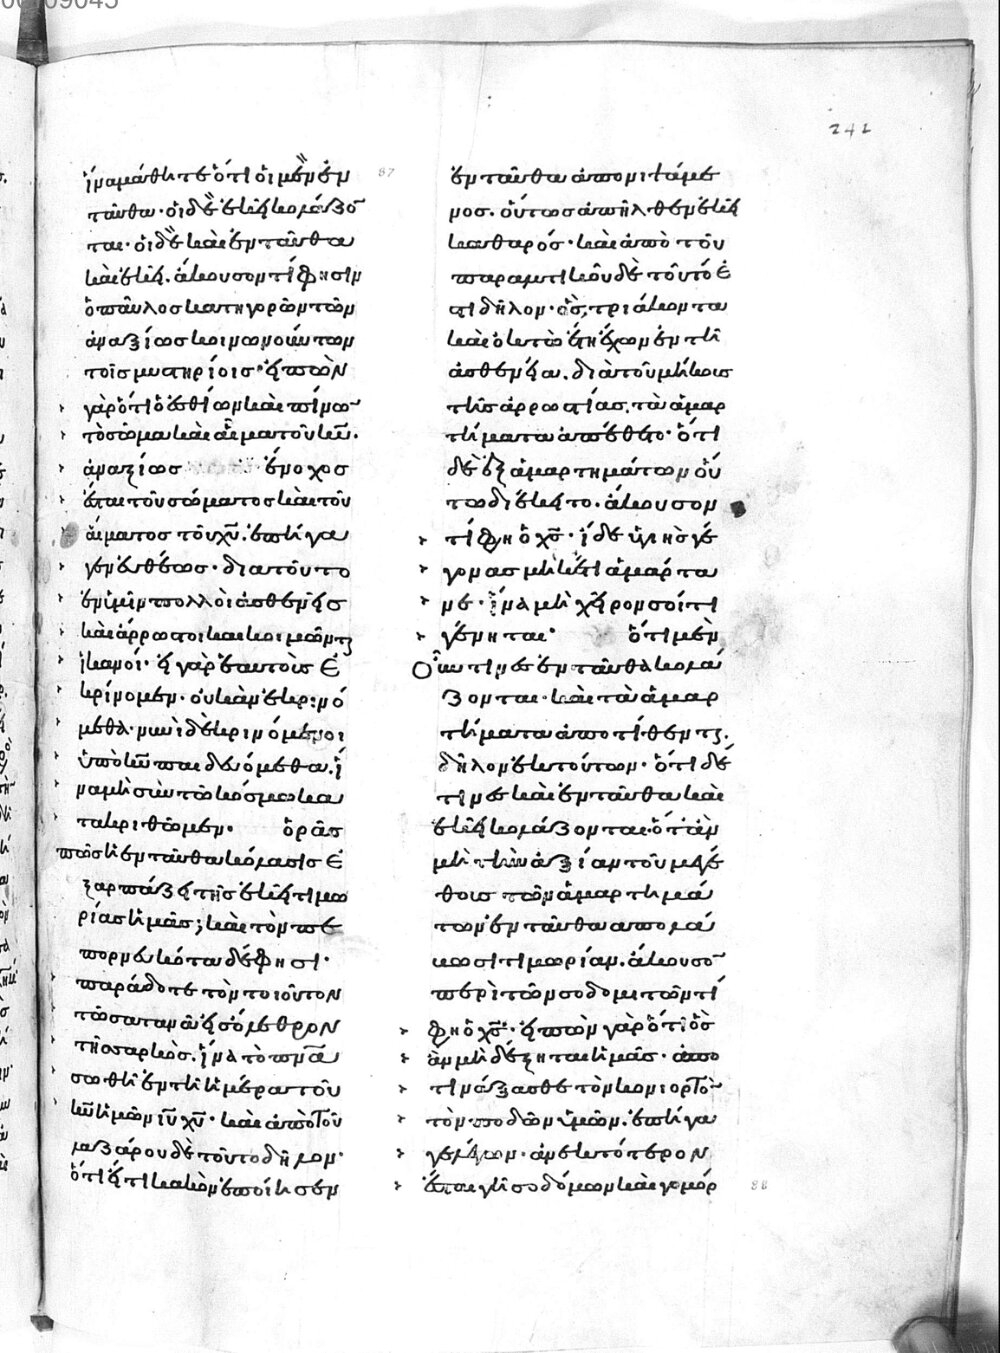 241
ἵνα μάθητε ὅτι οἱ μὲν ἐν
ταῦθα· οἱ δὲ ἐκεῖ κολάζο
ται· οἱ δὲ καὶ ἐνταῦθα
καὶ ἐκεῖ. ἄκουσον τί φησιν
ὁ παῦλος κατηγορῶν τῶν
ἀναξίως κοινωνούντων
τοῖς μυστηρίοις· εἰπὼν
γὰρ ὅτι ὁ ἐσθίων καὶ πίνων
τὸ σῶμα καὶ αἷμα τοῦ κυ.
ἀναξίως ἔνοχος
ἔσται τοῦ σώματος καὶ τοῦ
αἵματος τοῦ χυ. ἐπήγα
γεν εὐθέως· διατοῦτο
ἐν ὑμῖν πολλοὶ ἀσθενεῖς
καὶ ἄρρωστοι καὶ κοιμῶνται
ἱκανοί· εἰ γὰρ ἑαυτοὺς ἐ
κρίνομεν· οὐκ ἂν ἐκρινό
μεθα· νυνὶ δὲ κρινόμενοι
ὑπὸ κυ παιδευόμεθα. ἵ
να μὴ σὺν τῷ κόσμῳ κα
τακριθῶμεν. ὁρᾶς
πῶς ἡ ἐνταῦθα κόλασις ἐ
ξαρπάζει τῆς ἐκεῖ τιμω
ρίας ἡμᾶς; καὶ τὸν πε
πορνευκότα δέ φησι·
παράδοτε τὸν τοιοῦτον
τῷ σατανᾷ εἰς ὄλεθρον
τῆς σαρκὸς. ἵνα τὸ πνα
σωθῇ ἐν τῇ ἡμέρα τοῦ
κυ ἡμῶν ιυ χυ· καὶ ἀπὸ τοῦ
λαζάρου δὲ τοῦτο δῆλον·
ὅτι εἴ τι κακὸν ἐποίησεν
87
ἐνταῦθα ἀπονιψάμε
νος. οὕτως ἀπῆλθεν ἐκεῖ
καθαρός· καὶ ἀπὸ τοῦ
παραλυτικοῦ δὲ τοῦτό ἐ
στι δῆλον· ὃς, τριάκοντα
καὶ ὀκτὼ ἔτη ἔχων ἐν τῇ
ἀσθενείᾳ. διὰ τοῦ μήκους
τῆς ἀρρωστίας, τὰ ἁμαρ
τήματα ἀπέθετο· ὅτι
δὲ ἐξ ἁμαρτημάτων οὕ
τω διέκειτο. ἄκουσον
τί φη ὁ χς· ἴδε ὑγιὴς γέ
γονας μηκέτι ἁμάρτα
νε· ἵνα μὴ χεῖρόν σοί τι
γένηται· ὅτι μὲν
οὖν τινες ἐνταῦθα κολά
ζονται· καὶ τὰ ἁμαρ
τήματα ἀποτίθενται.
δῆλον ἐκ τούτων· ὅτι δέ
τινες καὶ ἐνταῦθα καὶ
ἐκεῖ κολάζονται· ὅταν
μὴ τὴν ἀξίαν τοῦ μεγέ
θους τῶν ἁμαρτημά
των ἐνταῦθα ἀπολά
βωσι τιμωρίαν. ἄκουσον
περὶ τῶν σοδομιτῶν τί
φη ὁ χς· εἰπὼν γὰρ ὅτι ὃς
ἂν μὴ δέξηται ἡμᾶς· ἀπο
τινάξασθε τὸν κονιορτὸν
τὸν ποδῶν ὑμῶν. ἐπήγα
γε λέγων· ἀνεκτότερον
ἔσται γῇ σοδόμων καὶ γομόρ
88